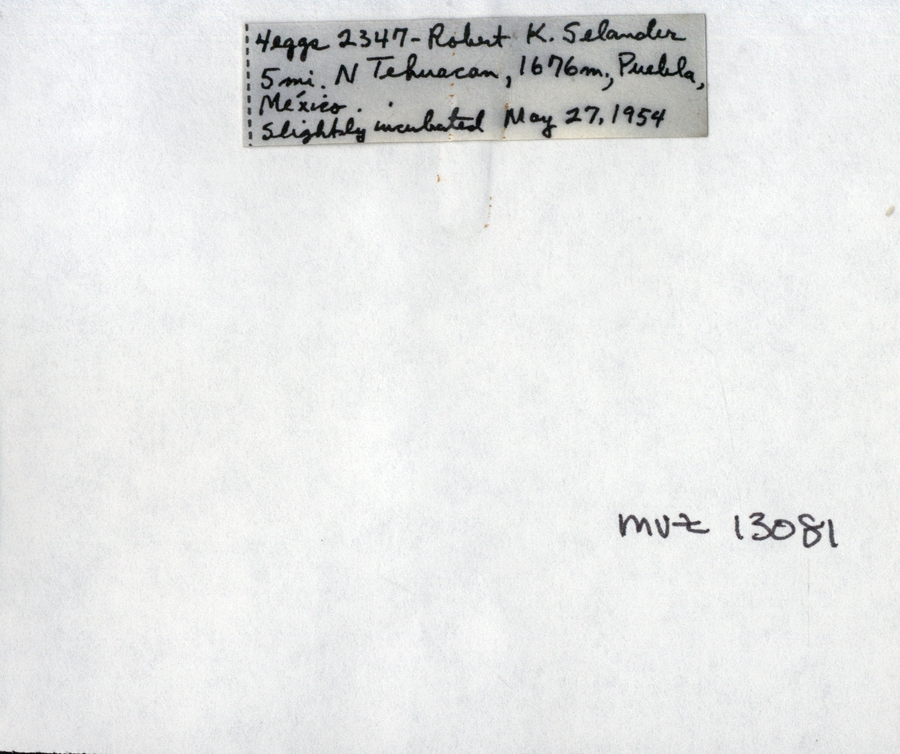 4eggs 2347-Robert K. Selander
5 mi. N Tehuacan, 1676m., Puebla,
México.
Slightly incubated May 27, 1954
MVZ 13081